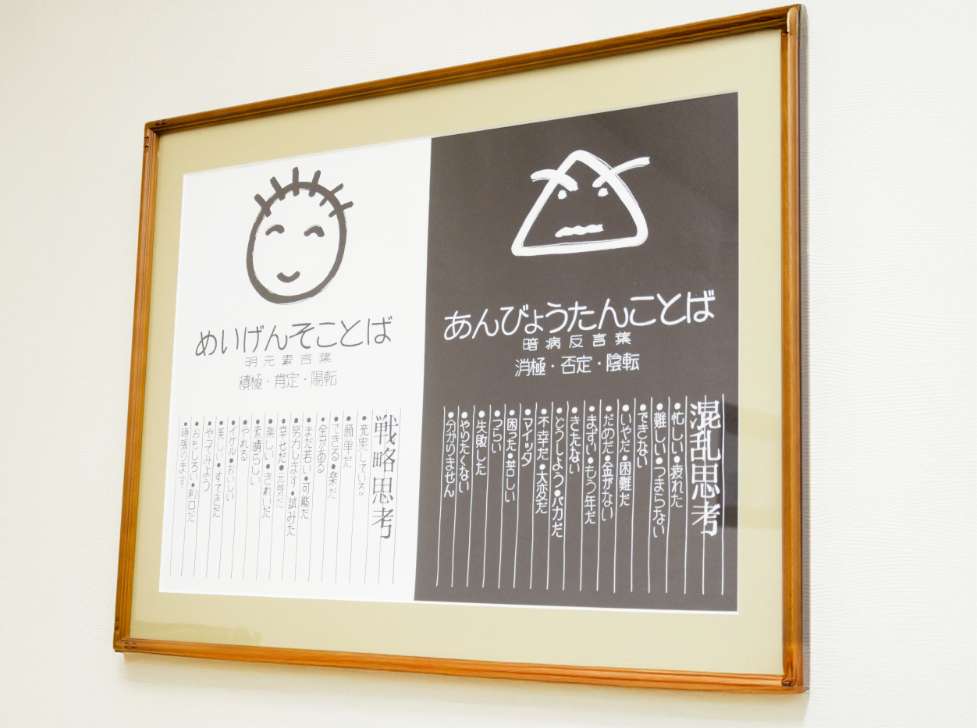 めいげんそことば
明元素言葉
積極・肯定・陽転
戦略思考
●充実している
●簡単だ
●できる●楽だ
●金がある
●まだ若い●可能だ
●幸せだ
●楽しい●きれいだ
●素晴らしい
●おいしい
●美しい●すてきだ
●やってみよう
●おもしろい●利口だ
●頑張ります
あんびょうたんことば
暗病反言葉
消極・否定・陰転
混乱思考
●忙しい●疲れた
●難しい●つまらない
●できない
●いやだ●困難だ
●だめだ●金がない
●まずい●もう年だ
●きたない
●どうしよう●バカだ
●不幸だ●大変だ
●マイッタ
●困った●苦しい
●つらい
●失敗した
●やりたくない
●分かりません